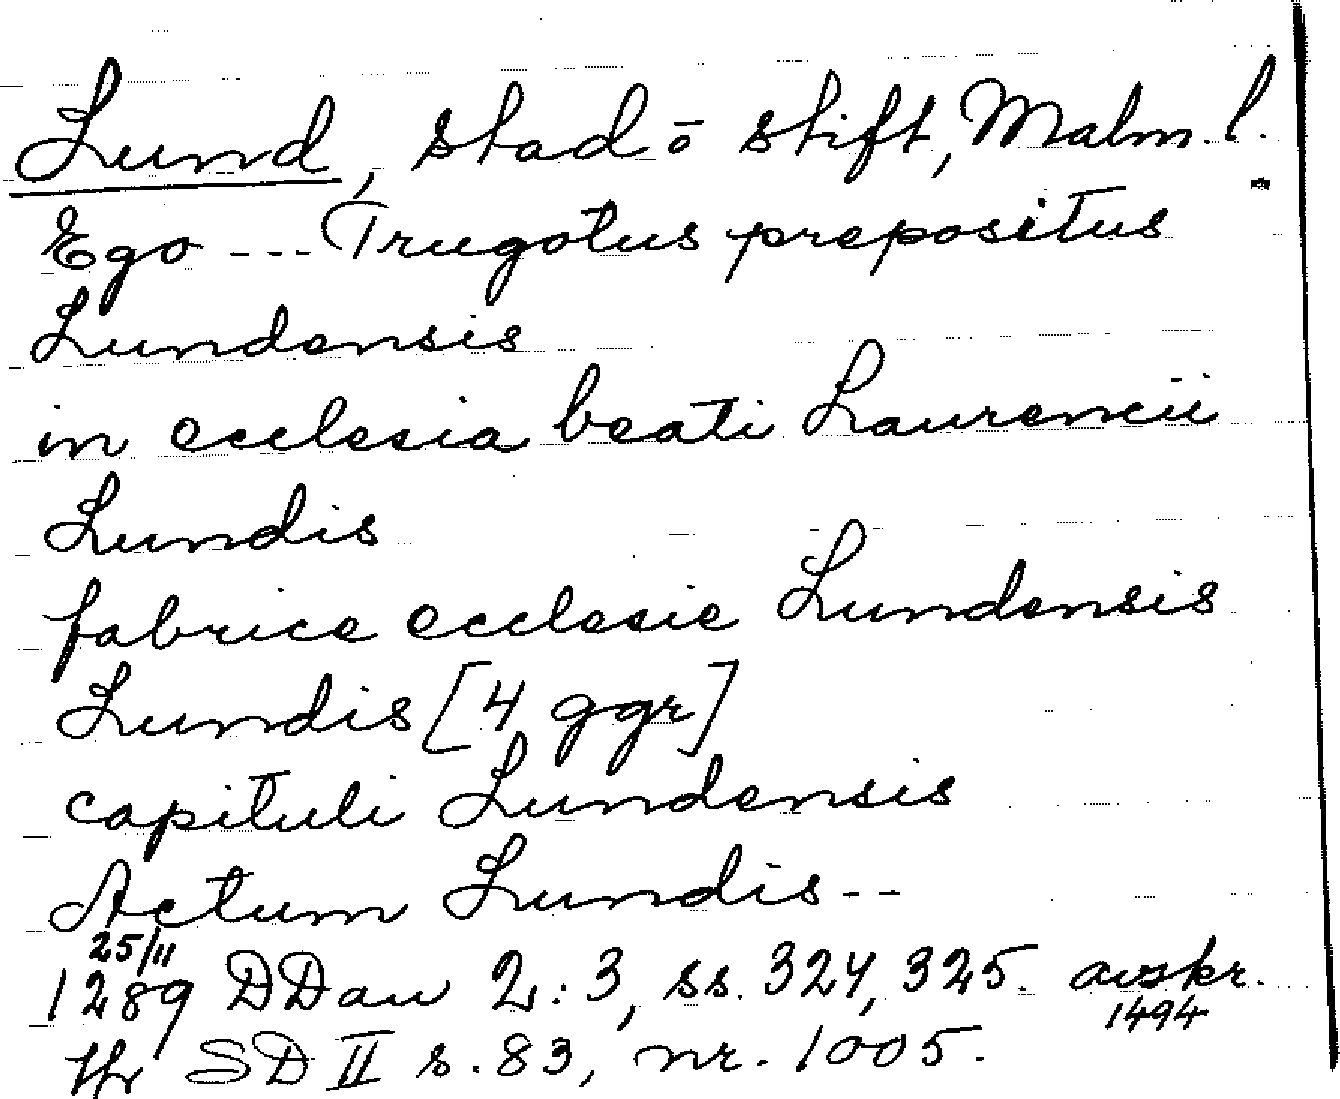 Lund, stad ō stift, Malm. l.
Ego --- Trugotus prepositus
Lundensis
in ecclesia beati Laurencii
Lundis
fabrice ecclesie Lundensis
Lundis [4 ggr]
capituli Lundensis
Actum Lundis --
25/11
1289 DDan 2:3, ss. 324, 325. avskr.
1494
Jfr SD II s. 83, nr. 1005.